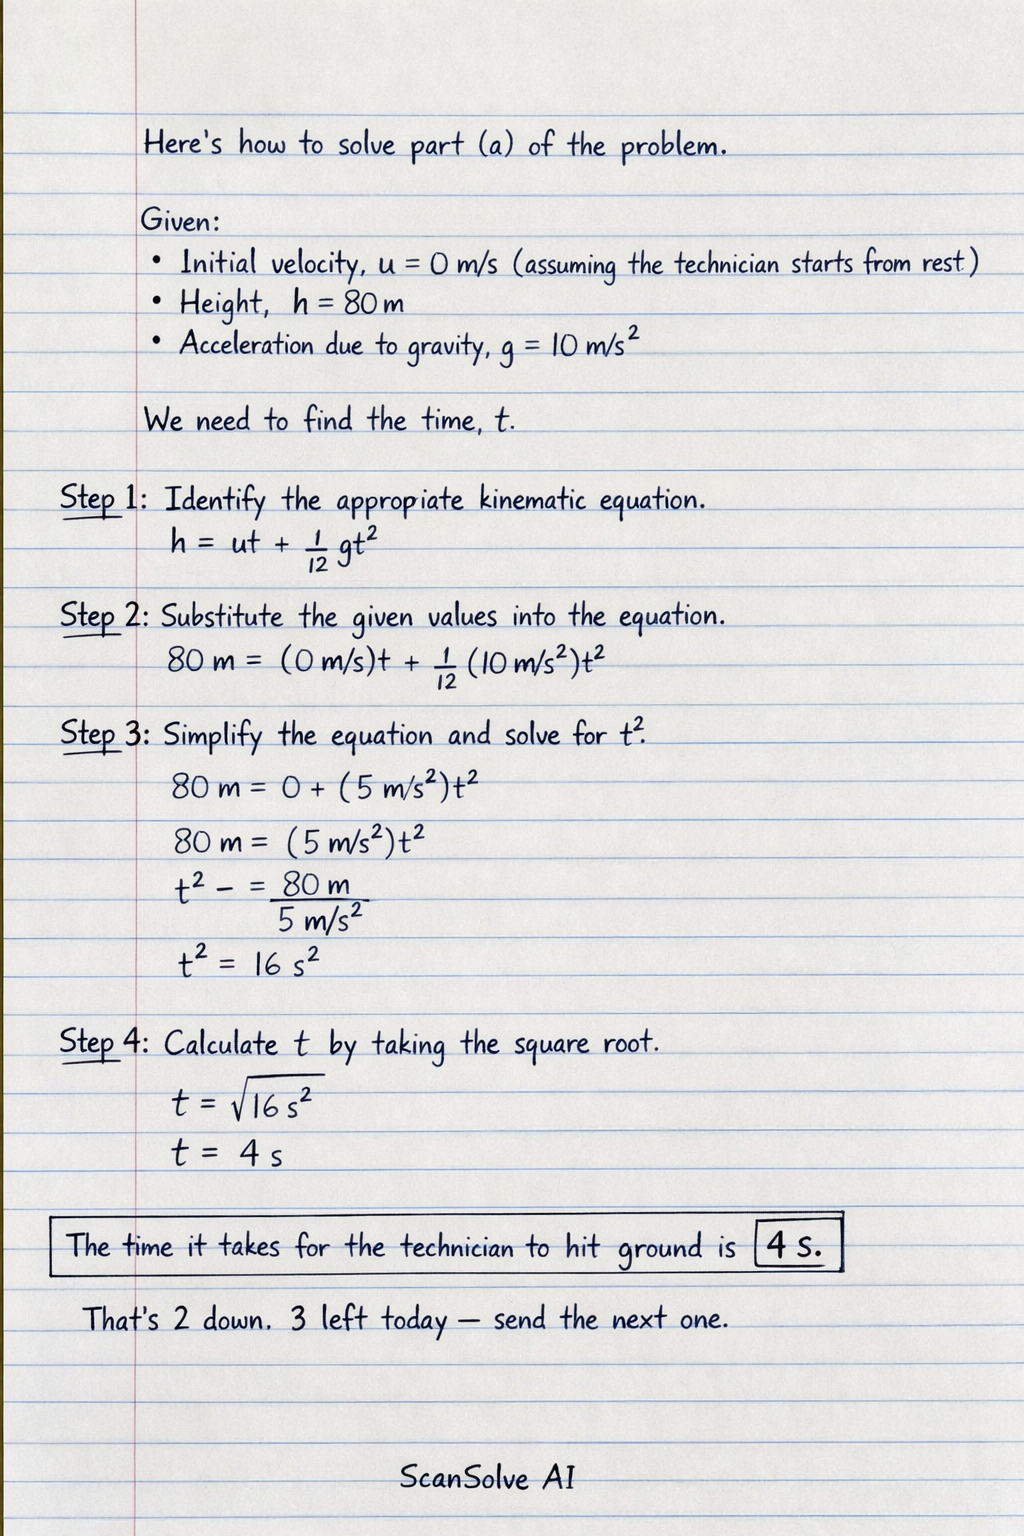 Here's how to solve part (a) of the problem.
Given:
• Initial velocity, u = 0 m/s (assuming the technician starts from rest)
• Height, h = 80 m
• Acceleration due to gravity, g = 10 m/s²
We need to find the time, t.
Step 1: Identify the appropiate kinematic equation.
h = ut + 1/12 gt²
Step 2: Substitute the given values into the equation.
80 m = (0 m/s)t + 1/12 (10 m/s²)t²
Step 3: Simplify the equation and solve for t².
80 m = 0 + (5 m/s²)t²
80 m = (5 m/s²)t²
t² - = 80 m / 5 m/s²
t² = 16 s²
Step 4: Calculate t by taking the square root.
t = √16 s²
t = 4 s
The time it takes for the technician to hit ground is 4 s.
That's 2 down. 3 left today — send the next one.
ScanSolve AI